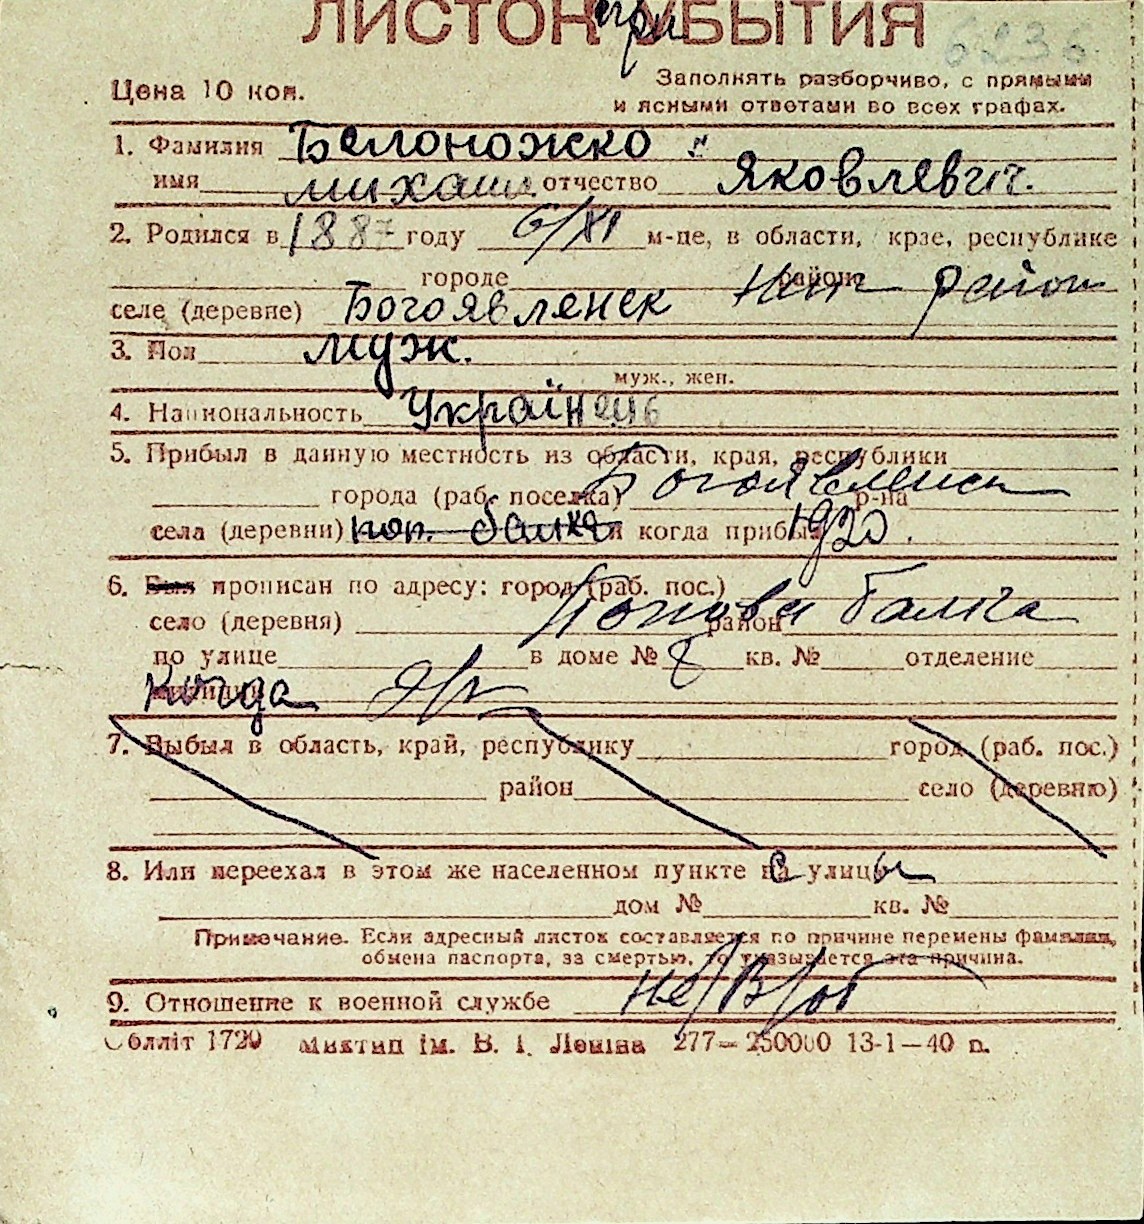 ЛИСТОК при УБЫТИЯ 6236
Цена 10 коп.
Заполнять разборчиво, с прямыми
и ясными ответами во всех графах.
1. Фамилия Белоножско
имя михаил отчество Яковлевич.
2. Родился в 1887 году 6/XI м-це, в области, крае, республике
городе районе район
селе (деревне) Богоявленск
3. Пол муж.
муж., жен.
4. Национальность Українець
5. Прибыл в данную местность из области, края, республики
города (раб. поселка) Богоявленск р-на
села (деревни) поп. балка и когда прибыл 1920.
6. Был прописан по адресу: город (раб. пос.)
село (деревня) Попова балка район
по улице в доме № 8 кв. № отделение
милиции Когда
7. Выбыл в область, край, республику город (раб. пос.)
район село (деревню)
8. Или переехал в этом же населенном пункте с улицы
дом № кв. №
Примечание. Если адресный листок составляется по причине перемены фамилии,
обмена паспорта, за смертью, то указывается эта причина.
9. Отношение к военной службе не/в/об
Обліт 1720 Миктип ім. В. І. Леніна 277—250000 13-1—40 р.